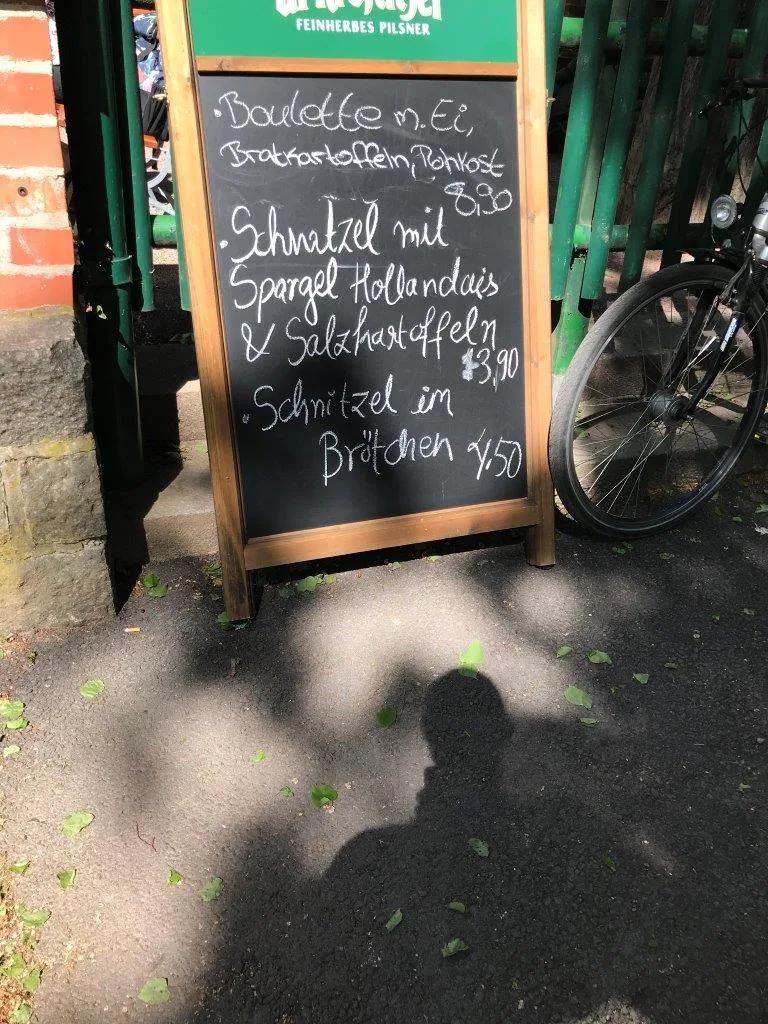 FEINHERBES PILSNER
• Boulette m. Ei,
Bratkartoffeln, Rohkost
8,90
• Schnitzel mit
Spargel Hollandais
& Salzkartoffeln
13,90
• Schnitzel im
Brötchen 4,50